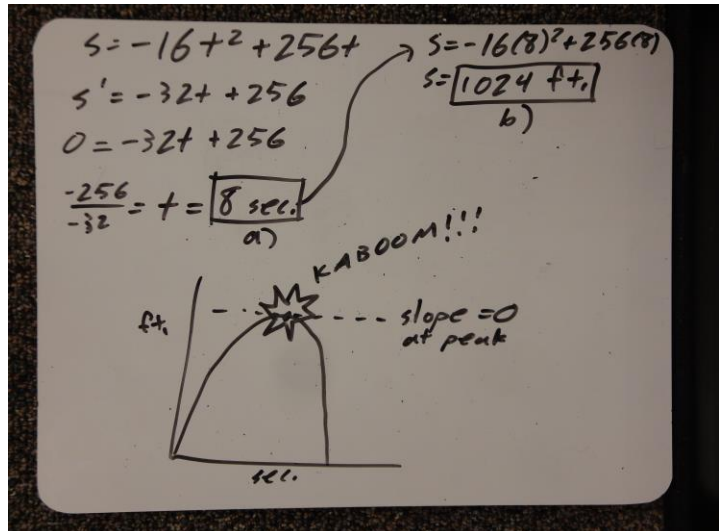 s = -16t² + 256t
s' = -32t + 256
0 = -32t + 256
-256/-32 = t = 8 sec.
a)
s = -16(8)² + 256(8)
s = 1024 ft.
b)
KABOOM!!!
ft.
slope = 0
at peak
sec.